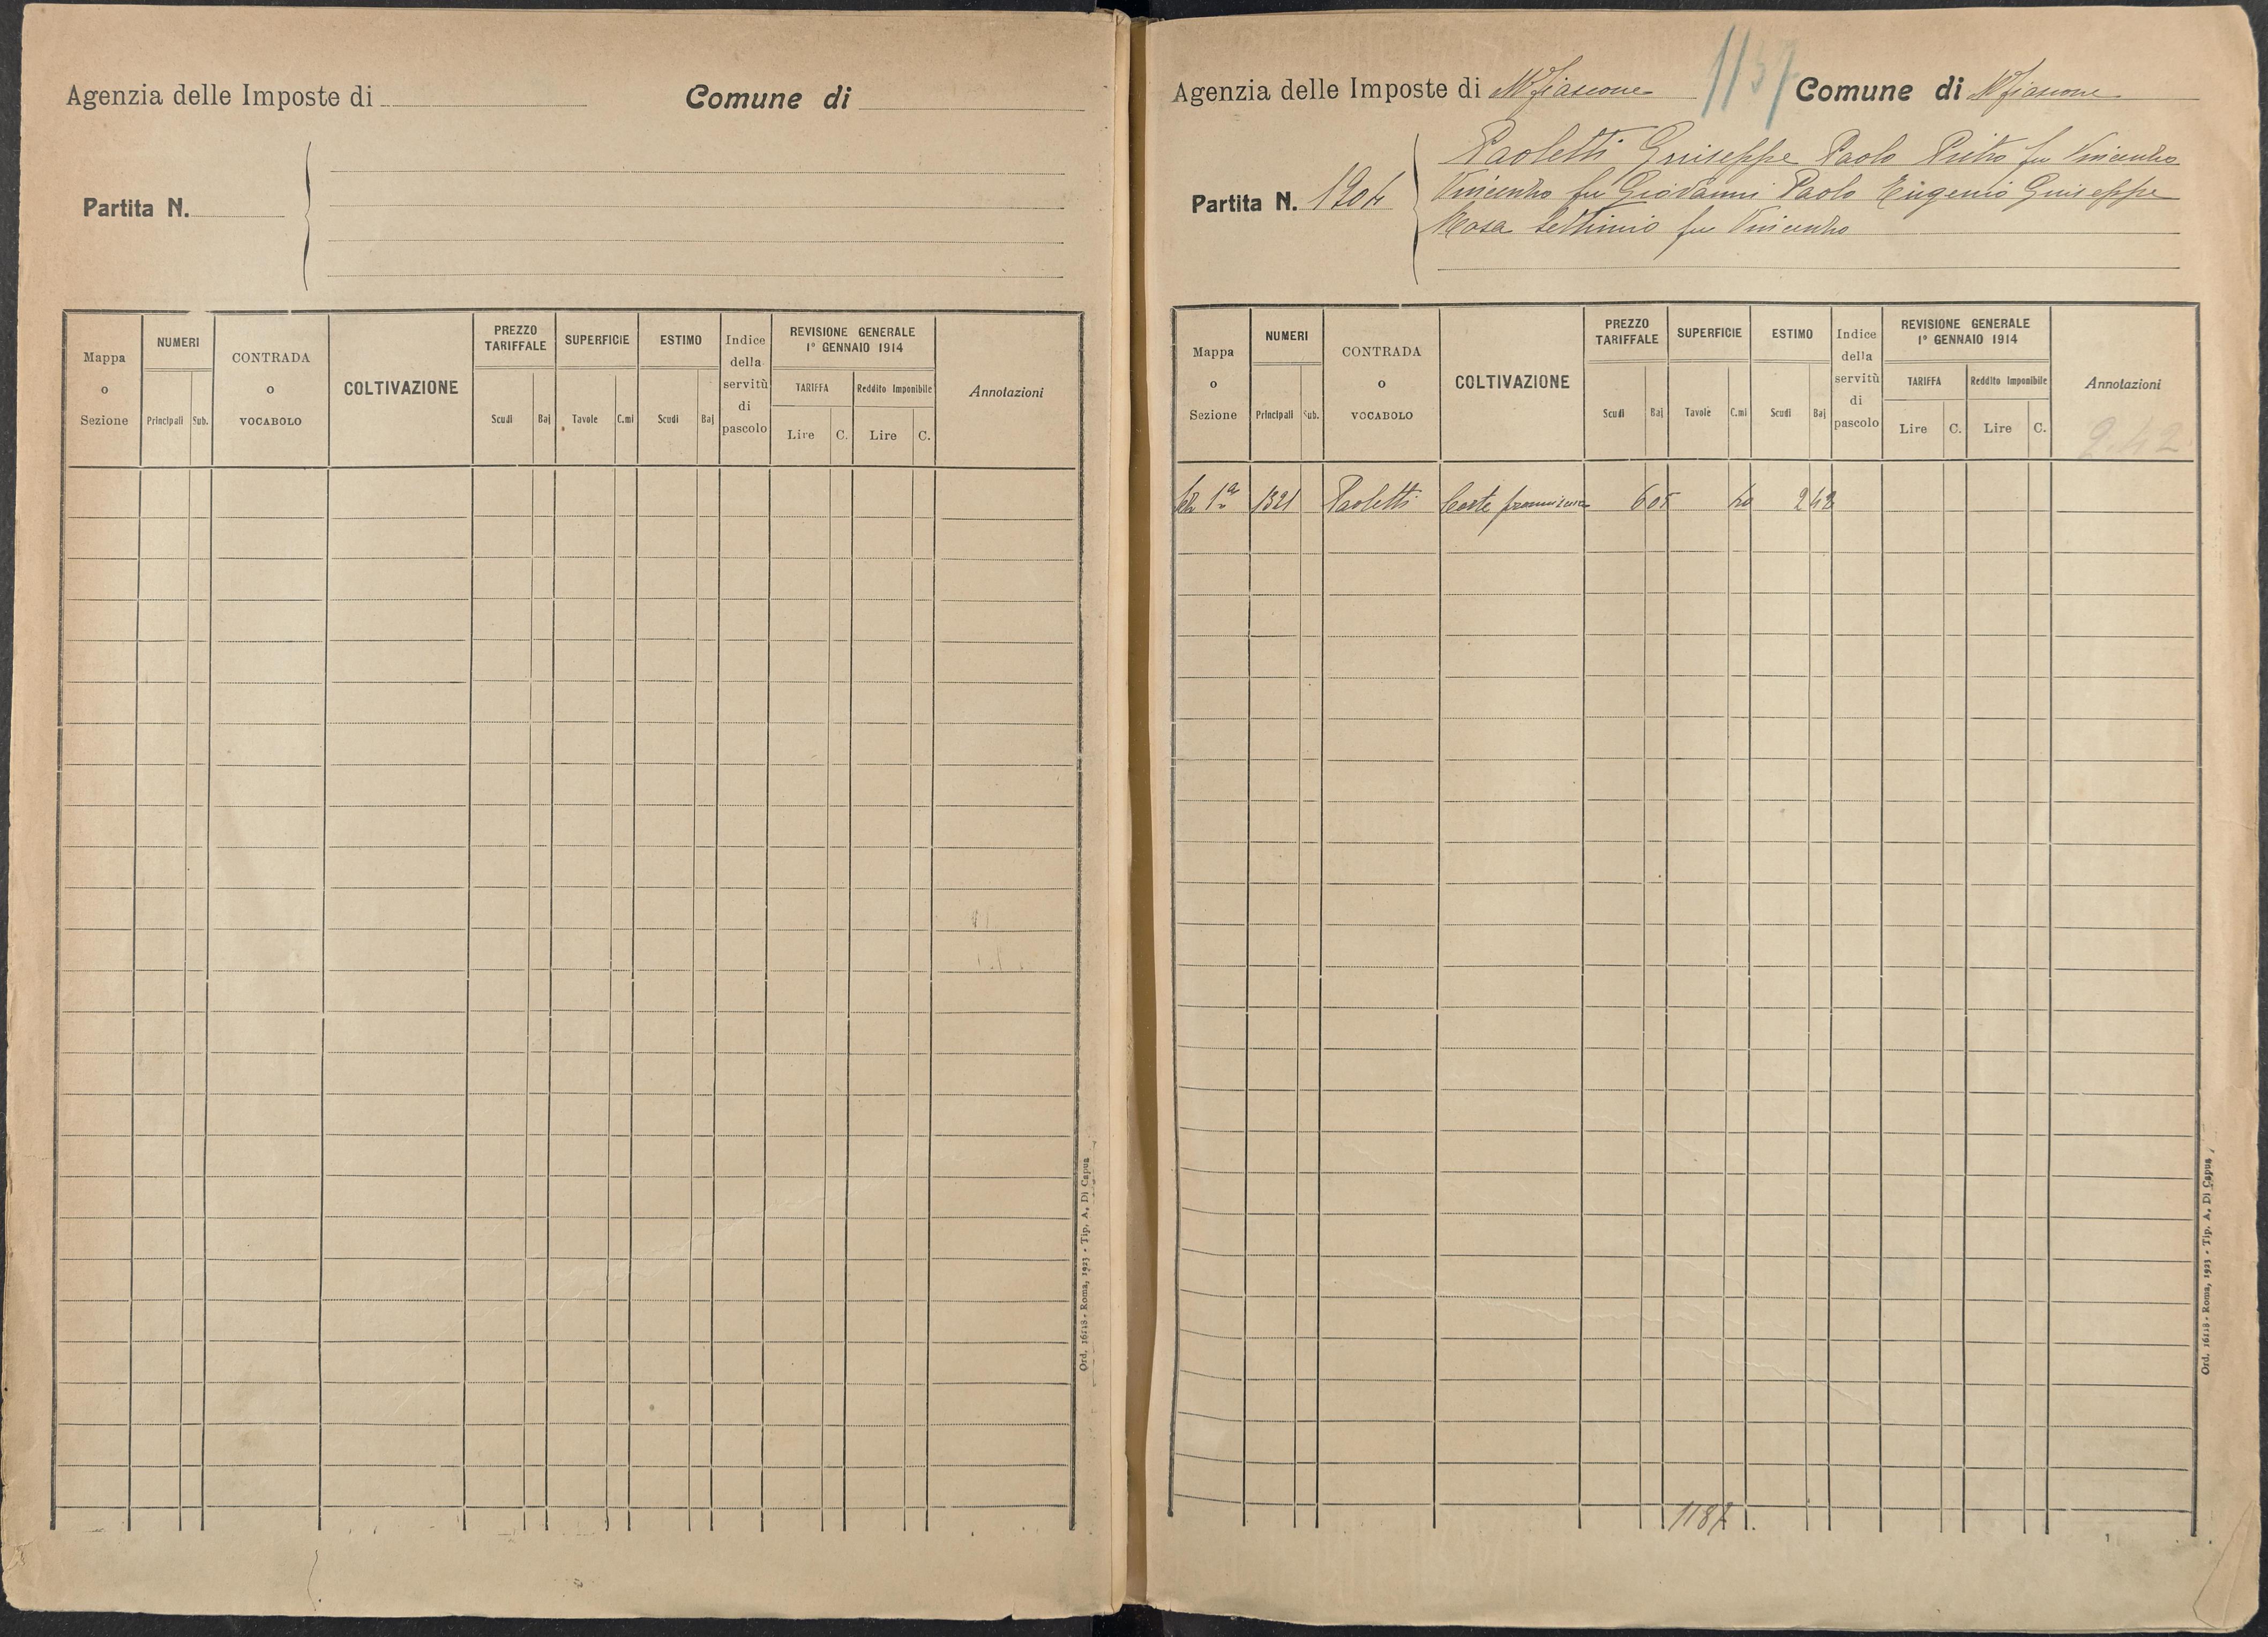 Agenzia delle Imposte di
Comune di
Partita N.
Mappa o Sezione
NUMERI
Principali
Sub.
CONTRADA o VOCABOLO
COLTIVAZIONE
PREZZO TARIFFALE
Scudi
Baj
SUPERFICIE
Tavole
C.mi
ESTIMO
Scudi
Baj
Indice della servitù di pascolo
REVISIONE GENERALE
1° GENNAIO 1914
TARIFFA
Reddito Imponibile
Lire
C.
Lire
C.
Annotazioni
Ord. 16118 - Roma, 1923 - Tip. A. Di Capua
Agenzia delle Imposte di Mfiascone
1157
Comune di Mfiascone
Partita N. 1904
Paoletti Giuseppe Paolo Pietro fu Vincenzo
Vincenzo fu Giovanni Paolo Eugenio Giuseppe
Rosa Settimio fu Vincenzo
Mappa o Sezione
NUMERI
Principali
Sub.
CONTRADA o VOCABOLO
COLTIVAZIONE
PREZZO TARIFFALE
Scudi
Baj
SUPERFICIE
Tavole
C.mi
ESTIMO
Scudi
Baj
Indice della servitù di pascolo
REVISIONE GENERALE
1° GENNAIO 1914
TARIFFA
Reddito Imponibile
Lire
C.
Lire
C.
Annotazioni
2.42
1ª 1321 Paoletti Corte 605 40 2 42
1187
Ord. 16118 - Roma, 1923 - Tip. A. Di Capua